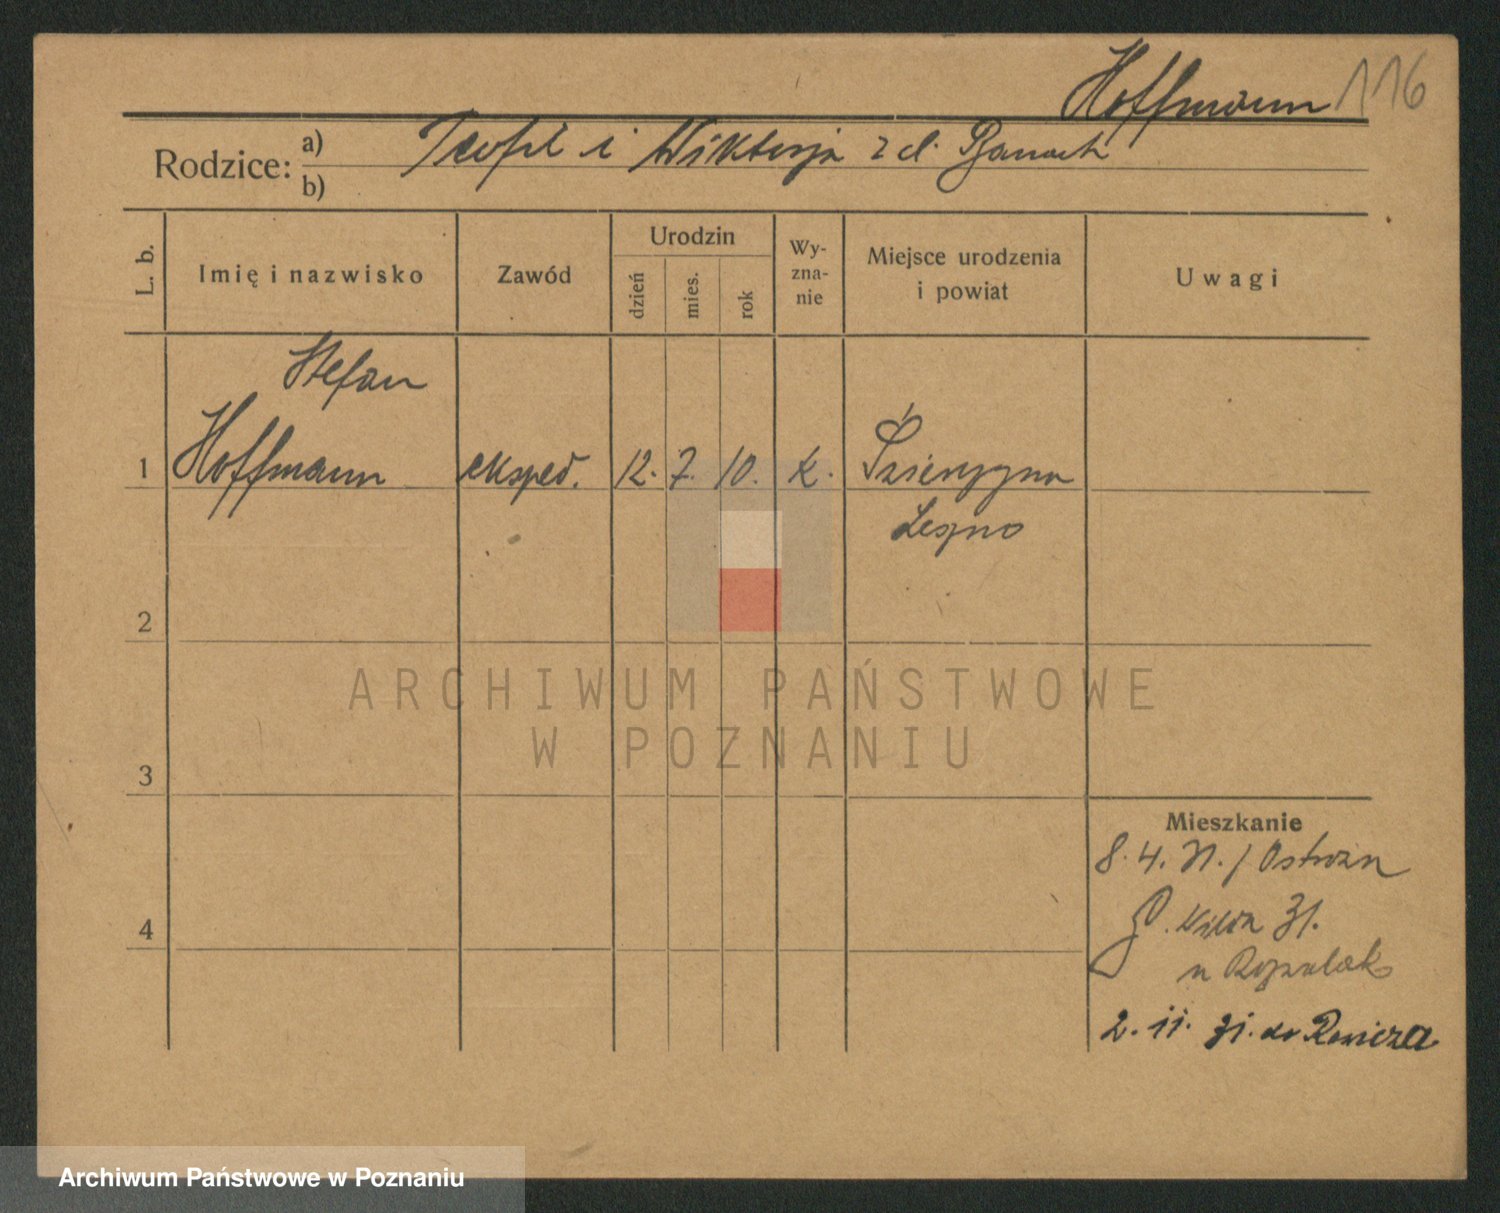 Hoffmann 116
Rodzice: a) Teofil i Wiktorja z d. Banach
b)
L. b.
Imię i nazwisko
Zawód
Urodzin
dzień
mies.
rok
Wy-
zna-
nie
Miejsce urodzenia
i powiat
Uwagi
Stefan
1 Hoffmann eksped. 12. 7. 10. k.
Leszno
2
3
4
Mieszkanie
8. 4. 31. /
31.
u
2. 11. 31. do Rawicza
ARCHIWUM PAŃSTWOWE
W POZNANIU
Archiwum Państwowe w Poznaniu